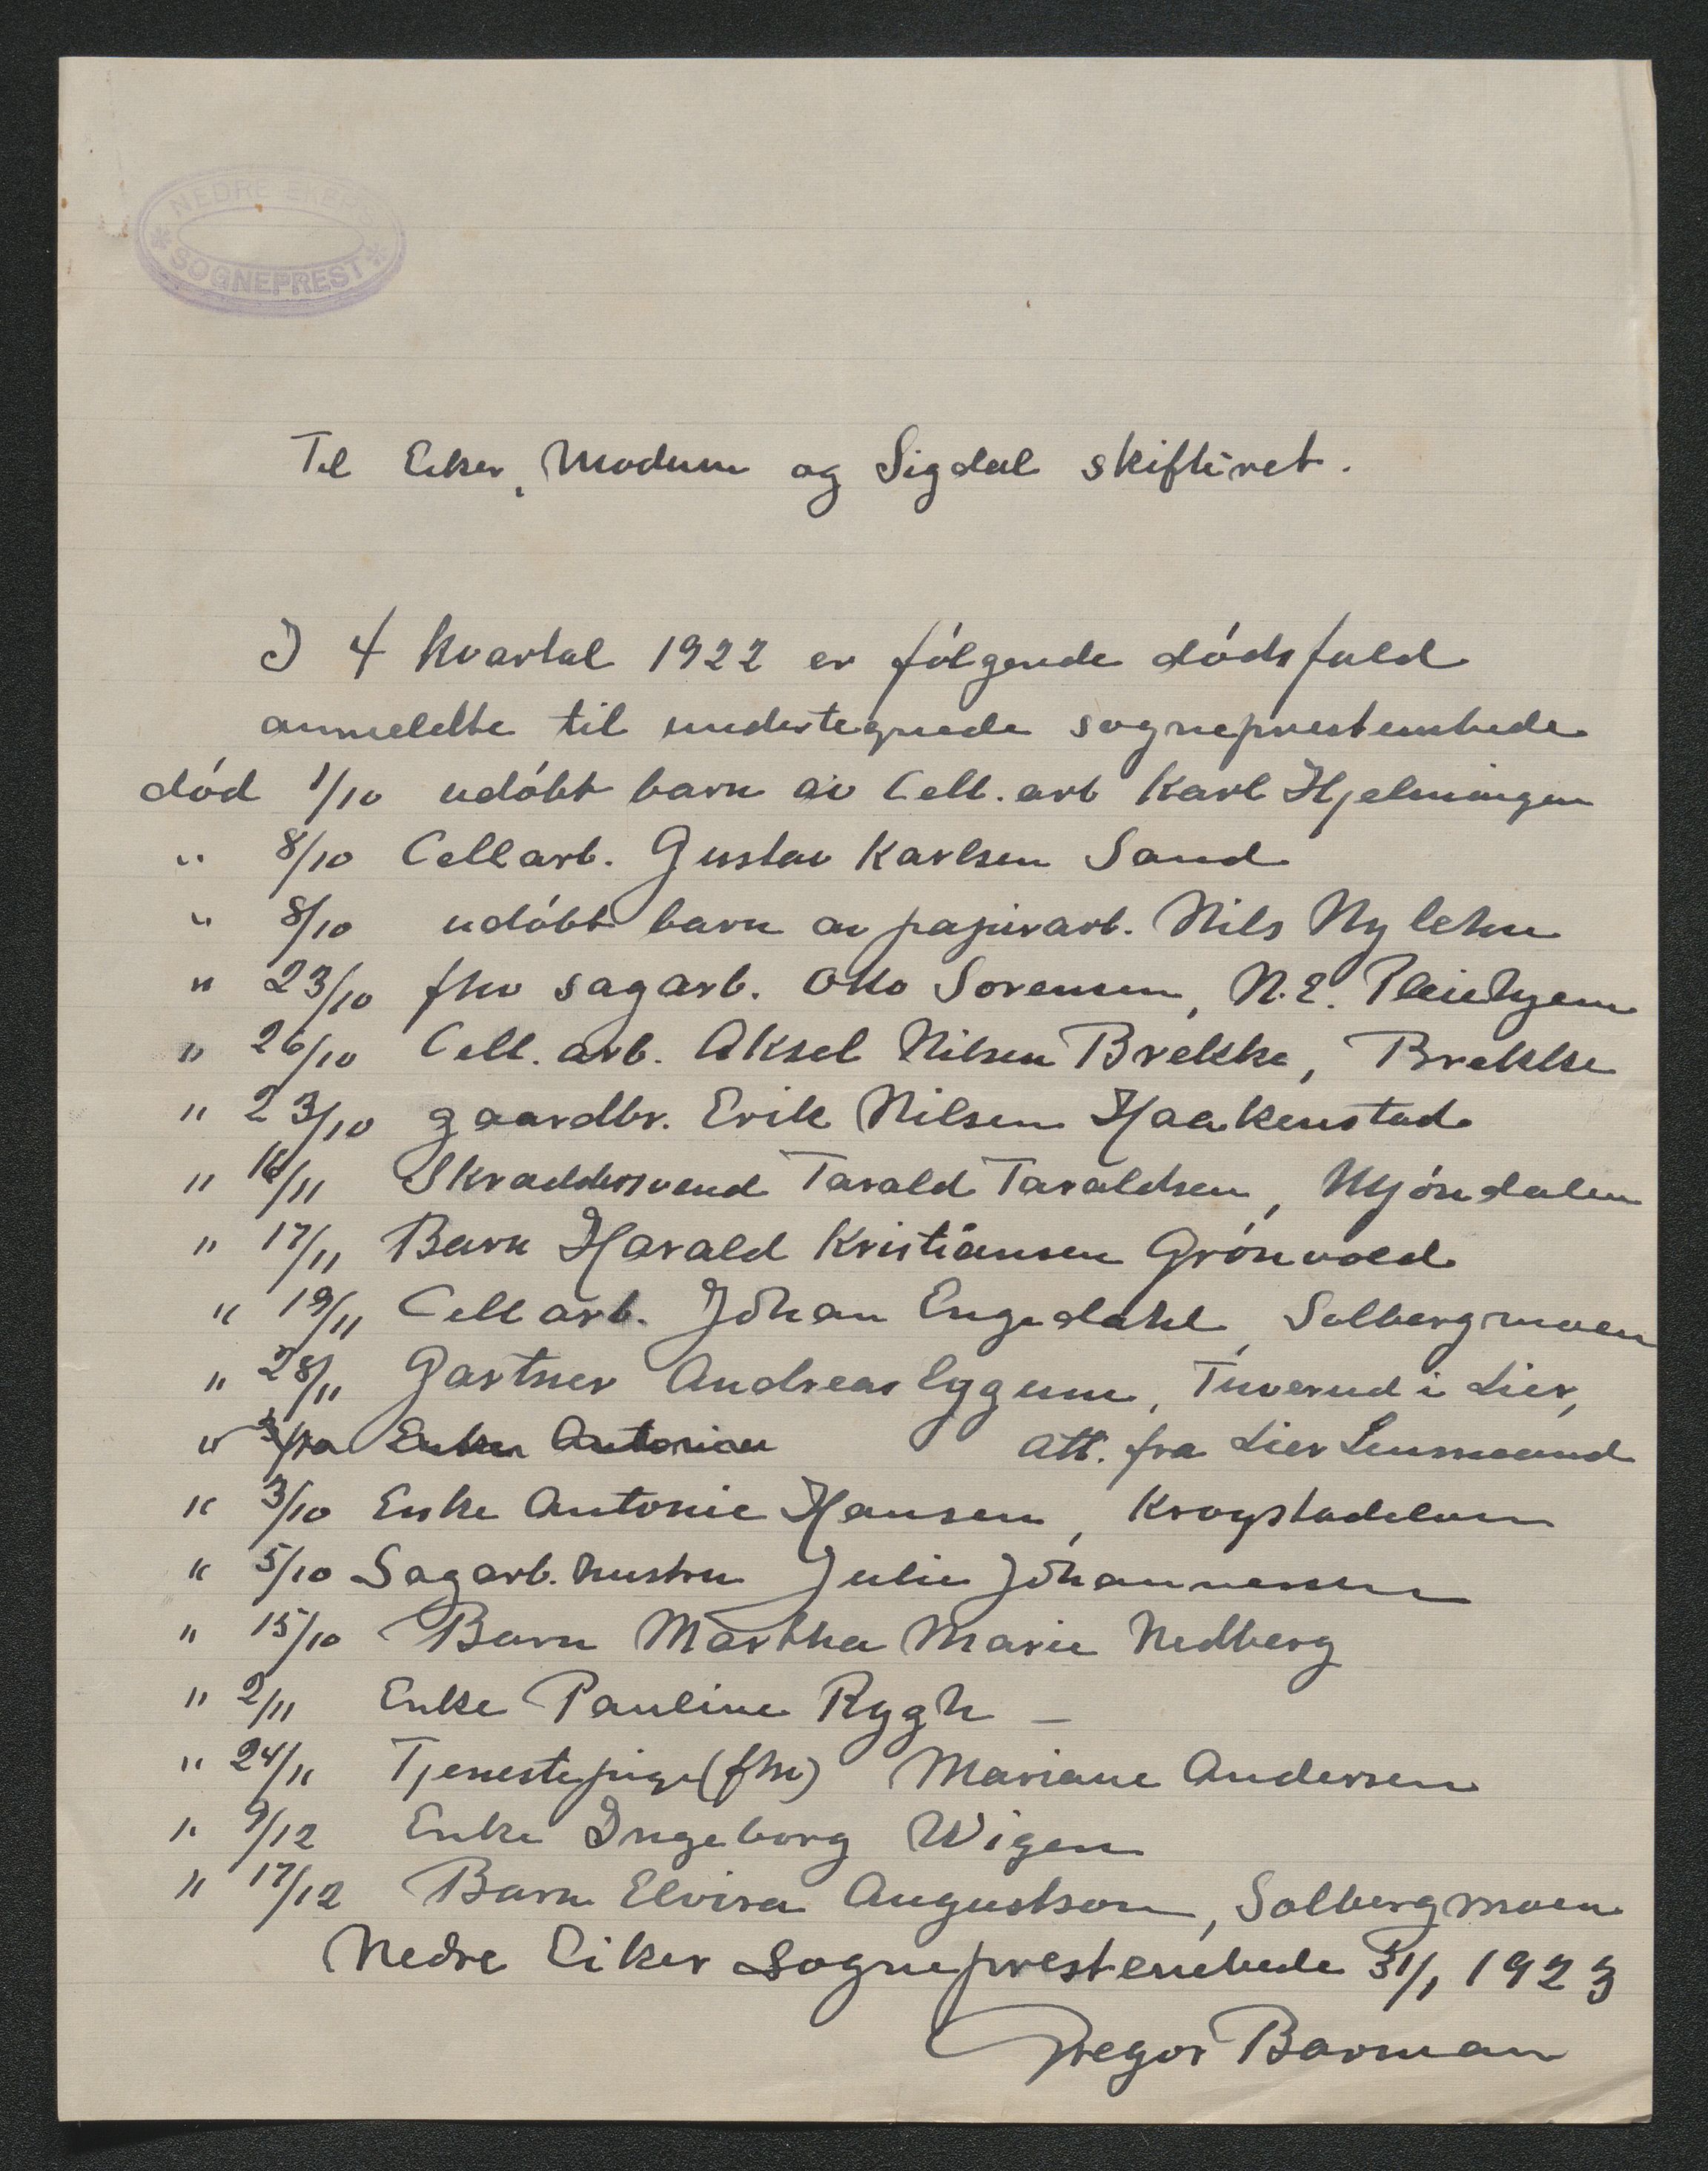 NEDRE EKERS
SOGNEPREST
Til Eker, Modum og Sigdal skifteret.
I 4 kvartal 1922 er følgende dødsfald
anmeldte til undertegnede sogneprestembede
død 1/10 udøbt barn av Cell. arb Karl Hjelmingen
" 8/10 Cellarb. Gustav Karlsen Sand
" 8/10 udøbt barn av papirarb. Nils Nylehn
" 23/10 fhv sagarb. Otto Sorensen, N.E. Pleiehjem
" 26/10 Cell. arb. Aksel Nilsen Brekke, Brekke
" 23/10 gaardbr. Erik Nilsen Haakenstad
" 16/11 Skraddersvend Tarald Taraldsen, Mjøndalen
" 17/11 Barn Harald Kristiansen Grønvold
" 19/11 Cellarb. Johan Engedahl, Solbergmoen
" 28/11 Gartner Andreas Eggum, Tuverud i Lier,
" Enken Antonien att. fra Lier Lensmand
" 3/10 Enke Antonie Hansen, Krogstadelven
" 5/10 Sagarb. hustru Julie Johannessen
" 15/10 Barn Martha Marie Nedberg
" 2/11 Enke Pauline Rygh –
" 24/11 Tjenestepige (fhv) Mariane Andersen
" 9/12 Enke Ingeborg Wigen
" 17/12 Barn Elvira Augustson, Solbergmoen
Nedre Eiker Sogneprestembede 31/1 1923
Gregor Barman